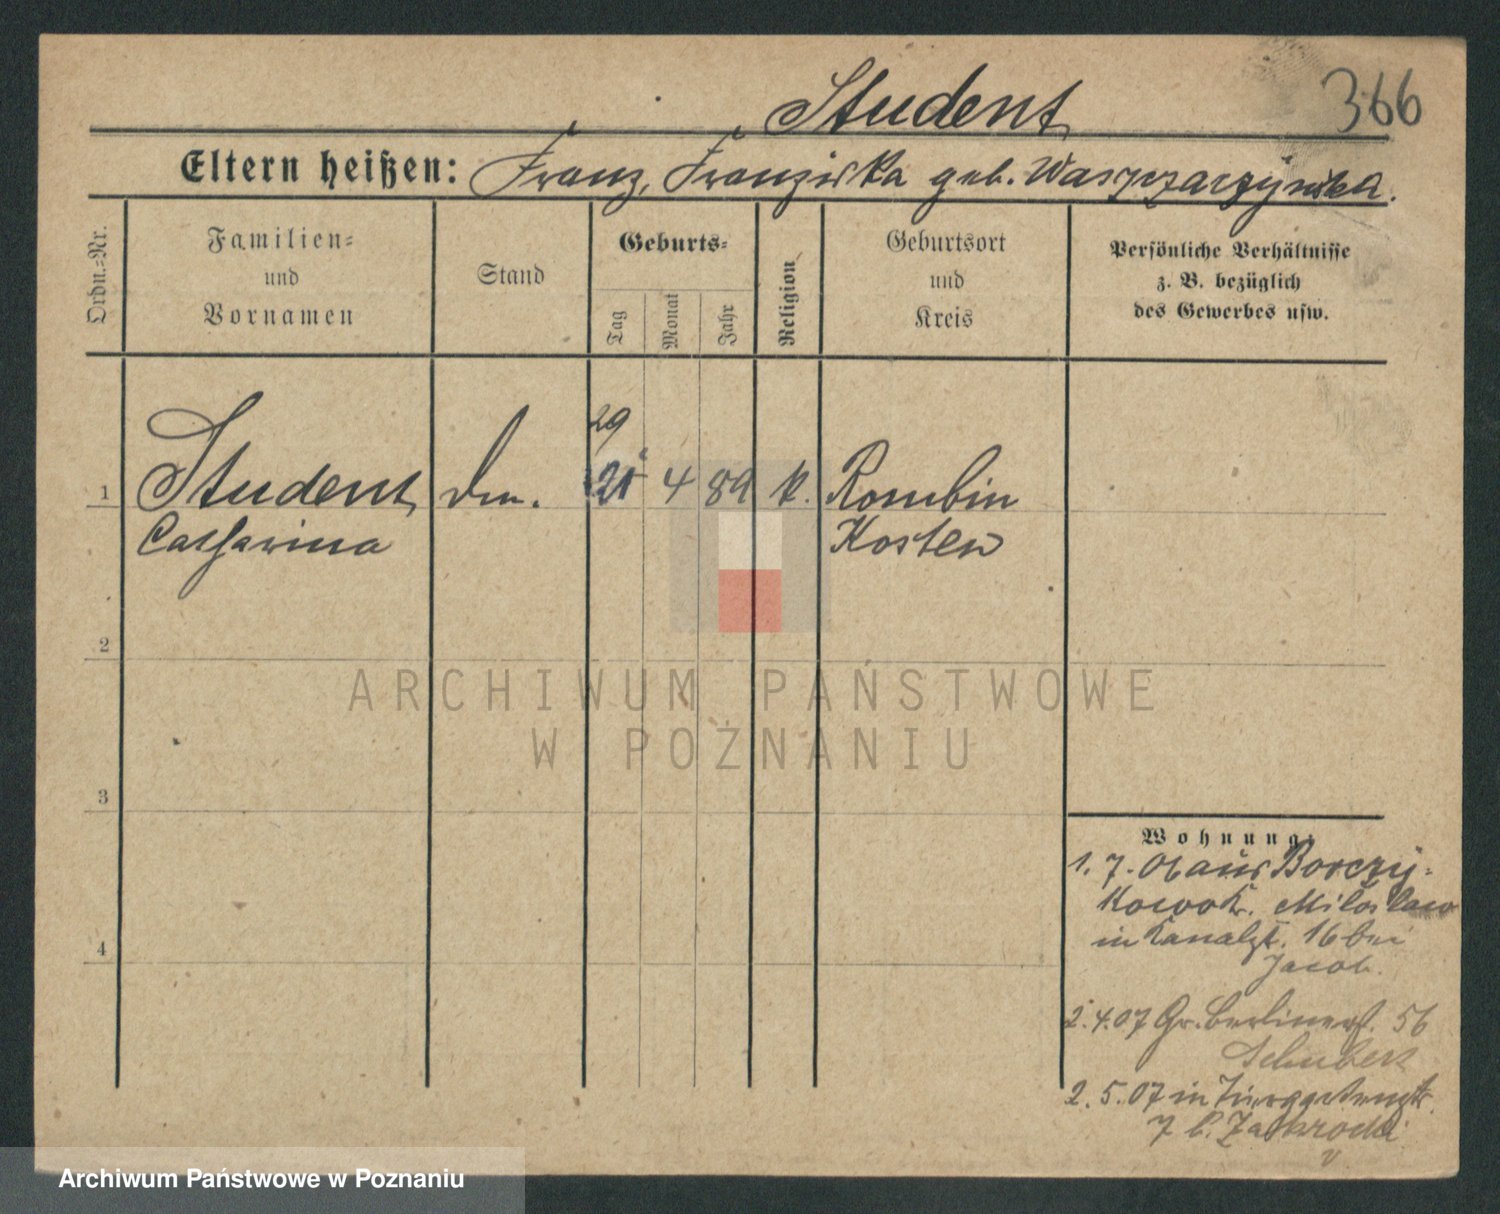 Student 366
Eltern heißen: Franz, Franziska geb.
Ordn.=Nr.
Familien=
und
Vornamen
Stand
Geburts=
Tag
Monat
Jahr
Religion
Geburtsort
und
Kreis
Persönliche Verhältnisse
z. B. bezüglich
des Gewerbes usw.
29
1 Student 21 4 89 k. Rombin
Catharina Kosten
2
3
4
Wohnung:
1. 7. 06 aus Borczy-
Miloslaw
in Kanalst. 16 bei
Jacob.
2. 4. 07 Gr. Berlinerst. 56
Schubert
2. 5. 07 in
7 b. Zakrocki
ARCHIWUM PAŃSTWOWE
W POZNANIU
Archiwum Państwowe w Poznaniu